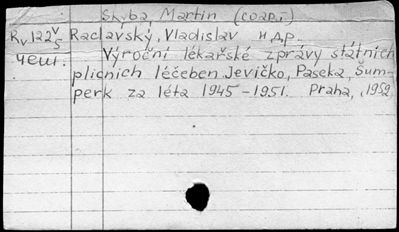 Skyba, Martin (соавт.)
Rv 122 V/5 Raclavský, Vladislav и др.
чеш. Výroční lékařské zprávy státních
plicních léčeben Jevíčko, Paseka, Šum-
perk za léta 1945-1951. Praha, 1952